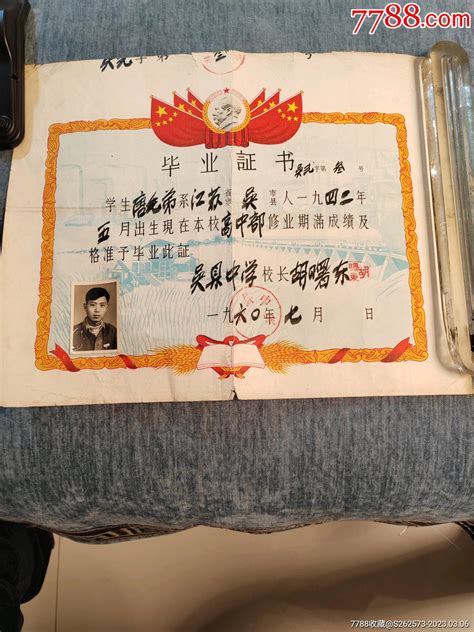 7788.com
字第叁号
毕业証书
吴元字第叁号
学生唐兄弟系江苏省吴县市人一九四二年
五月出生現在本校高中部修业期滿成績及
格准予毕业此証
吴县中学校长胡曙东
一九六〇年七月 日
7788收藏@S262573-2023.03.06